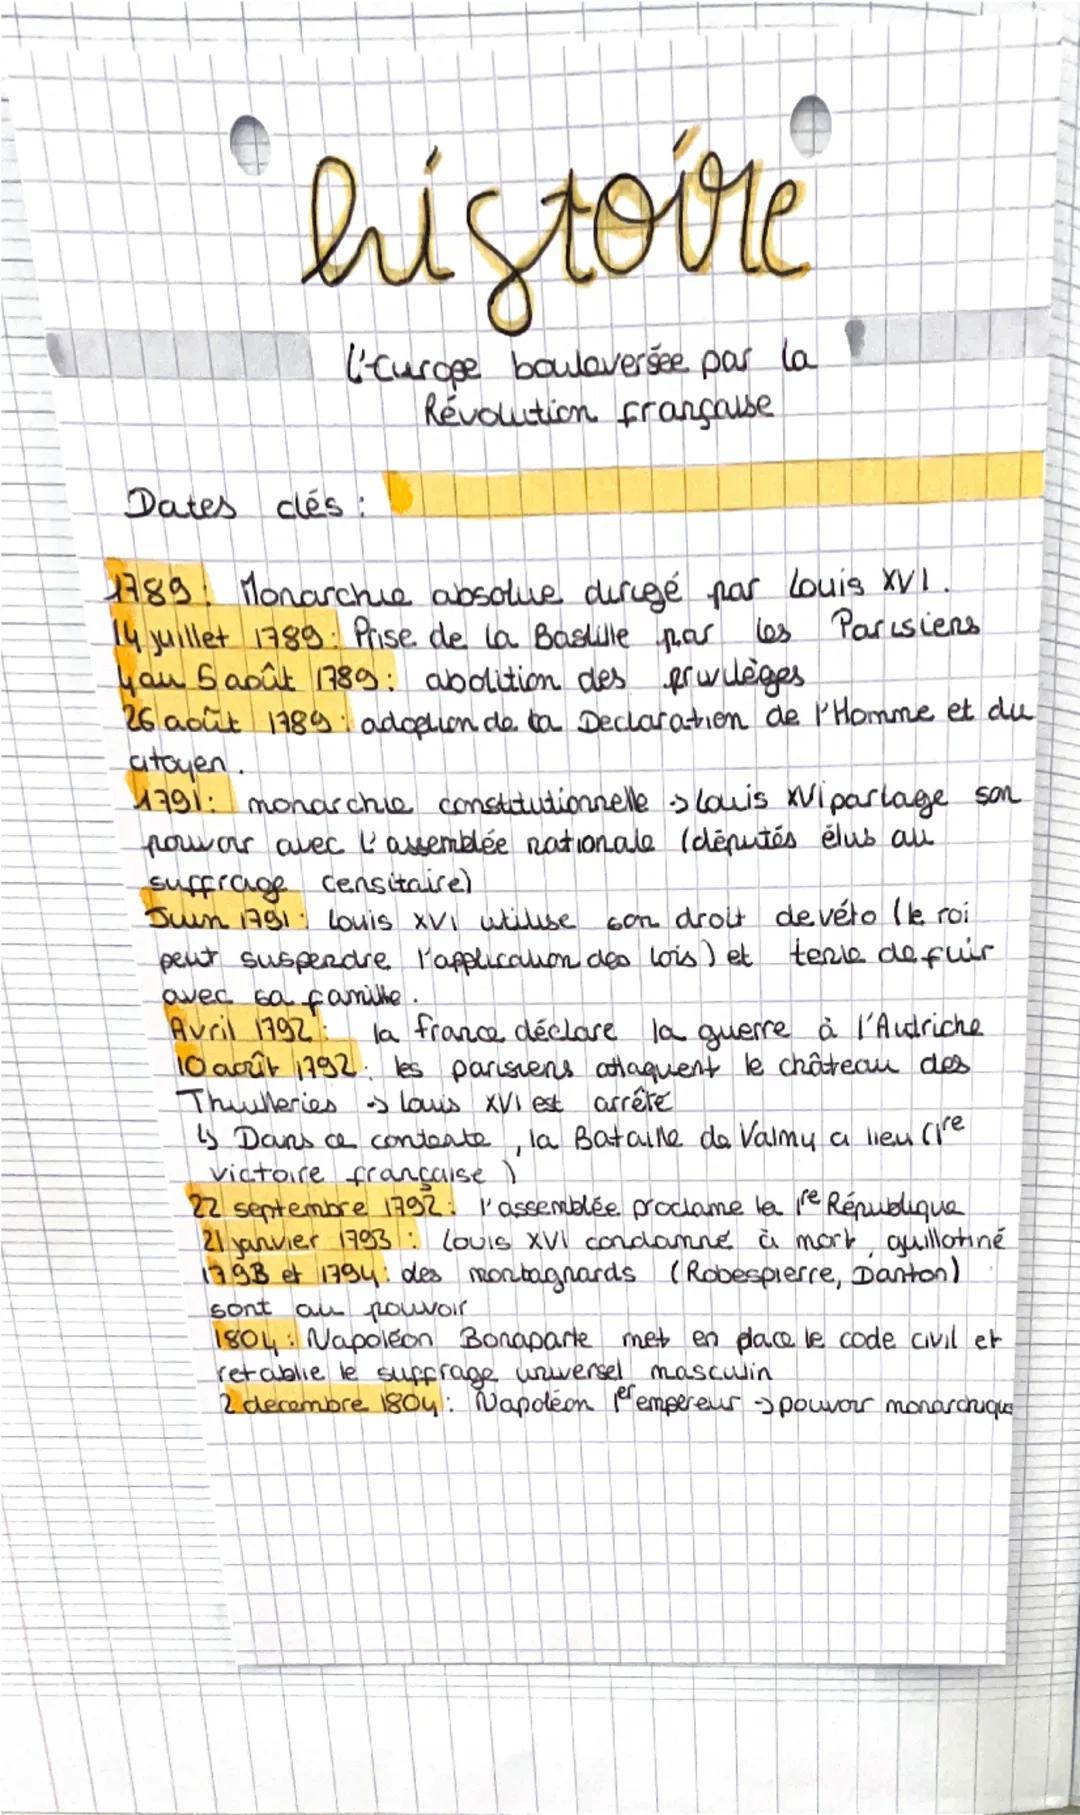 histoire
l'Europe boulaversée par la
Révolution française
Dates clés :
1789 : Monarchie absolue dirigé par Louis XVI.
14 juillet 1789 : Prise de la Bastille par les Parisiens
4 au 5 août 1789 : abolition des privilèges
26 août 1789 : adoption de la Declaration de l'Homme et du
citoyen.
1791 : monarchie constitutionnelle → Louis XVI partage son
pouvoir avec l'assemblée nationale (députés élus au
suffrage censitaire)
Juin 1791 : Louis XVI utilise son droit de véto (le roi
peut suspendre l'application des lois) et tente de fuir
avec sa famille.
Avril 1792 : la france déclare la guerre à l'Autriche
10 août 1792 : les parisiens attaquent le château des
Thuilleries → Louis XVI est arrêté
↳ Dans ce contexte, la Bataille de Valmy a lieu (1re
victoire française)
22 septembre 1792 : l'assemblée proclame la 1re République
21 janvier 1793 : Louis XVI condamné à mort, guillotiné
1793 et 1794 : des montagnards (Robespierre, Danton)
sont au pouvoir
1804 : Napoléon Bonaparte met en place le code civil et
retablie le suffrage universel masculin
2 decembre 1804 : Napoléon 1er empereur → pouvoir monarchique